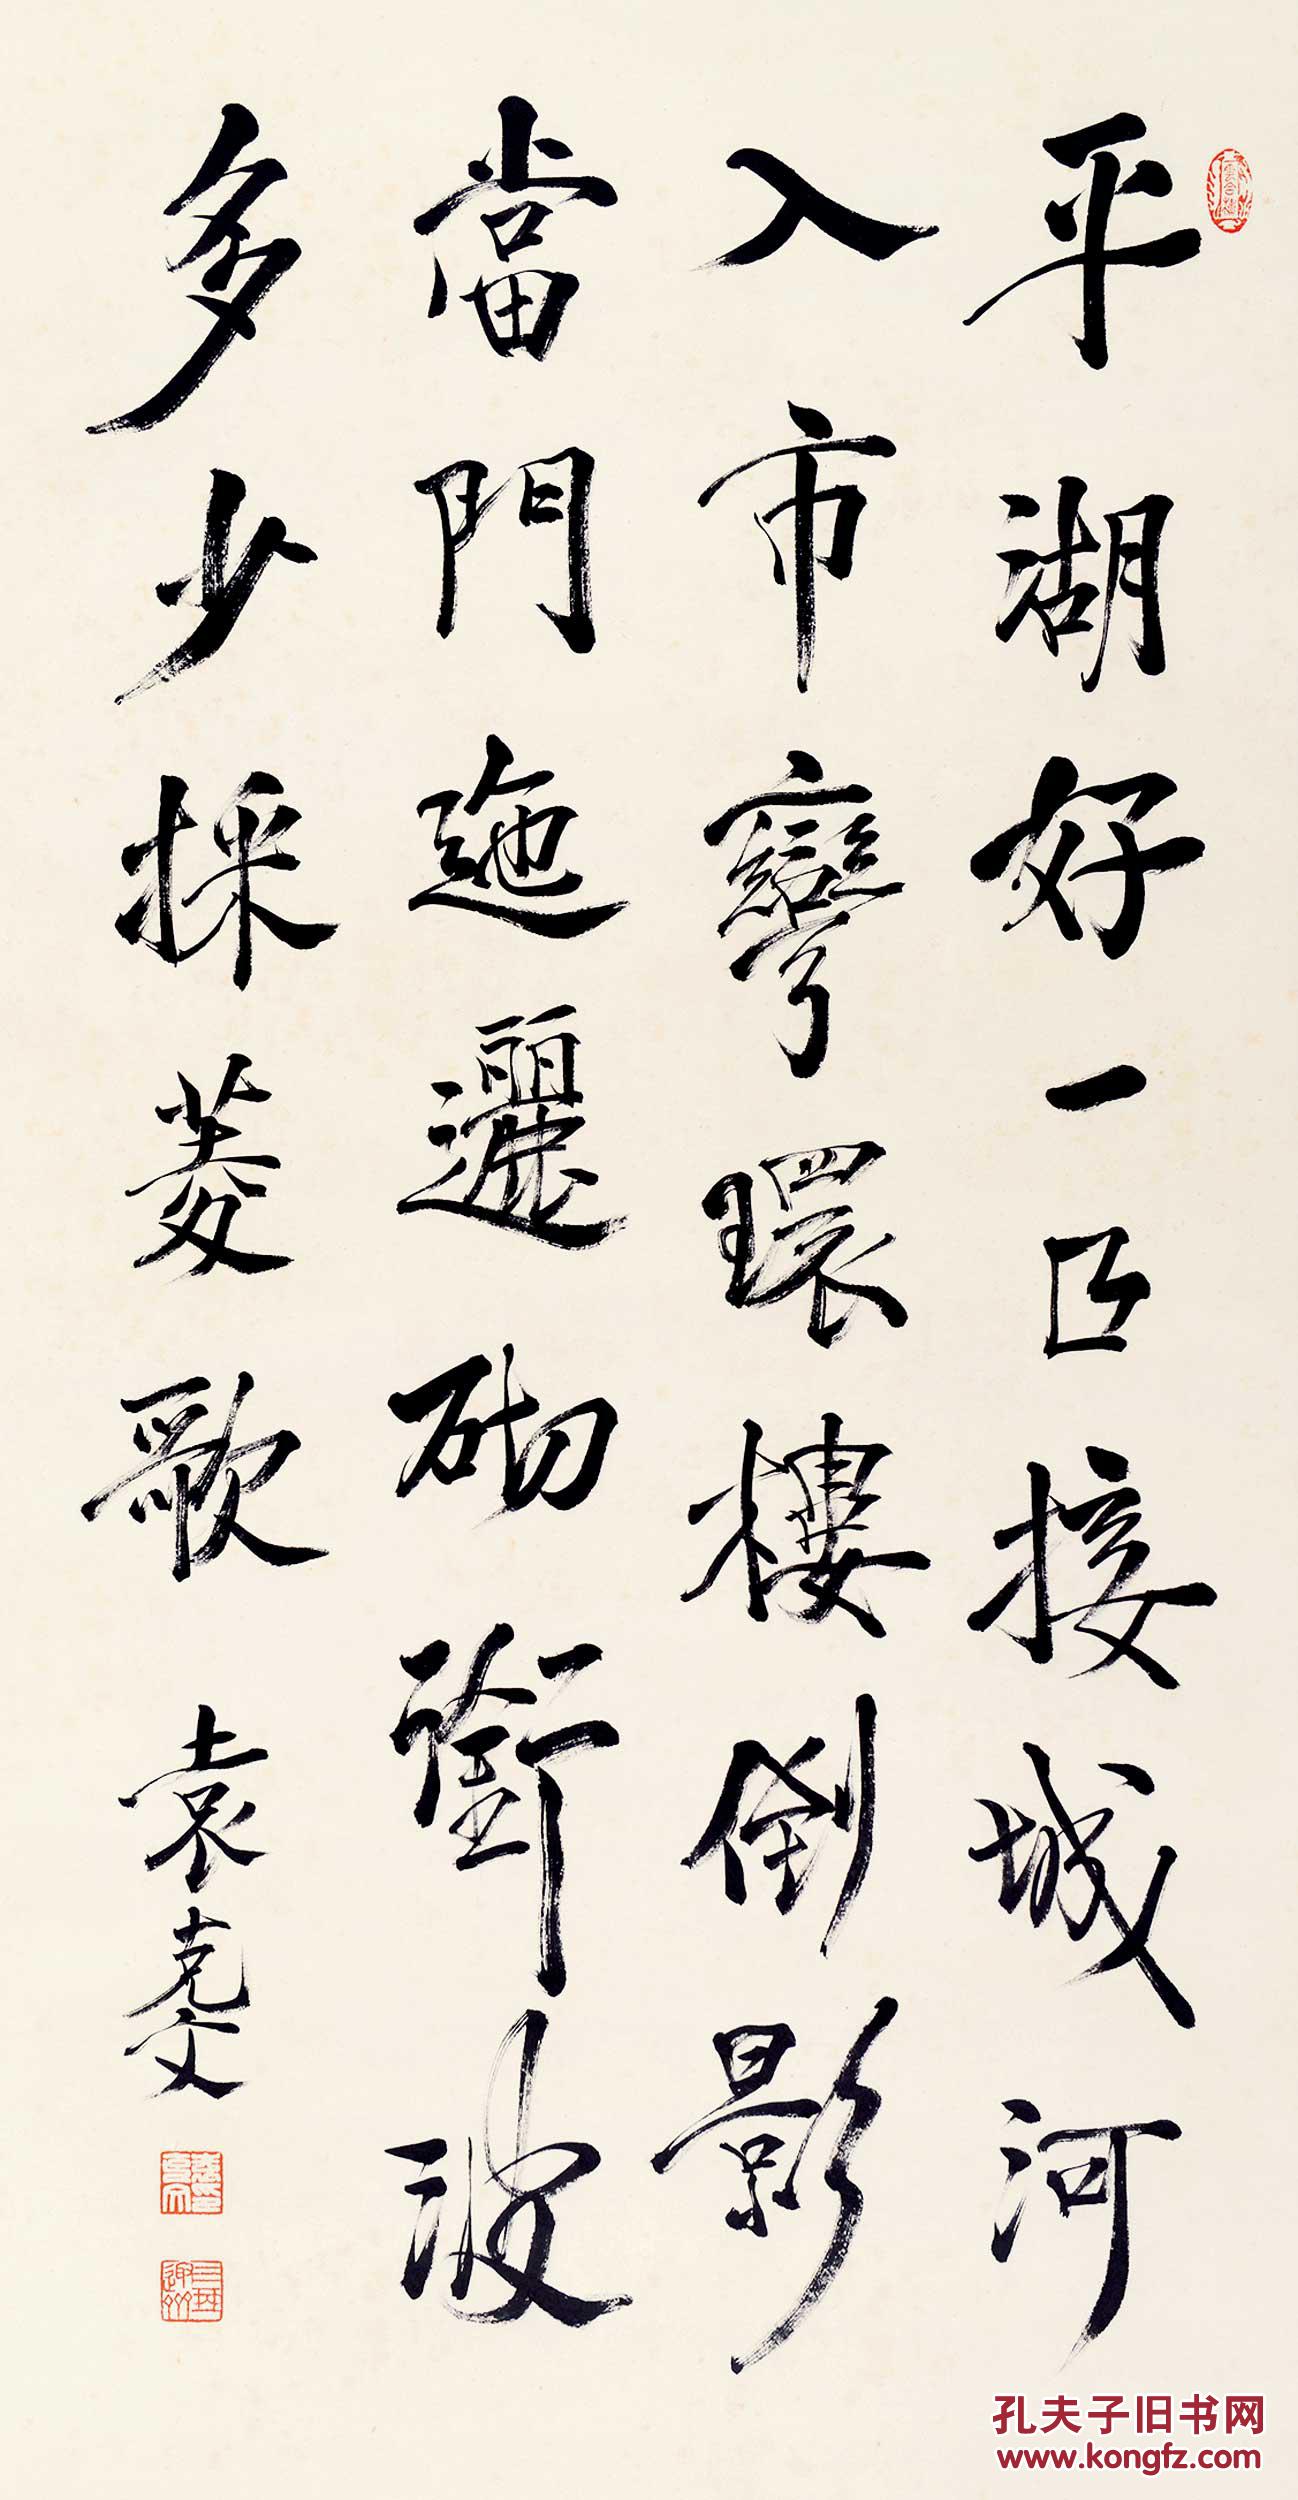 平湖好一接城河
入市彎環樓倒影
當門迤邐砌銜波
多少採菱歌
袁克文
孔夫子旧书网
www.kongfz.com